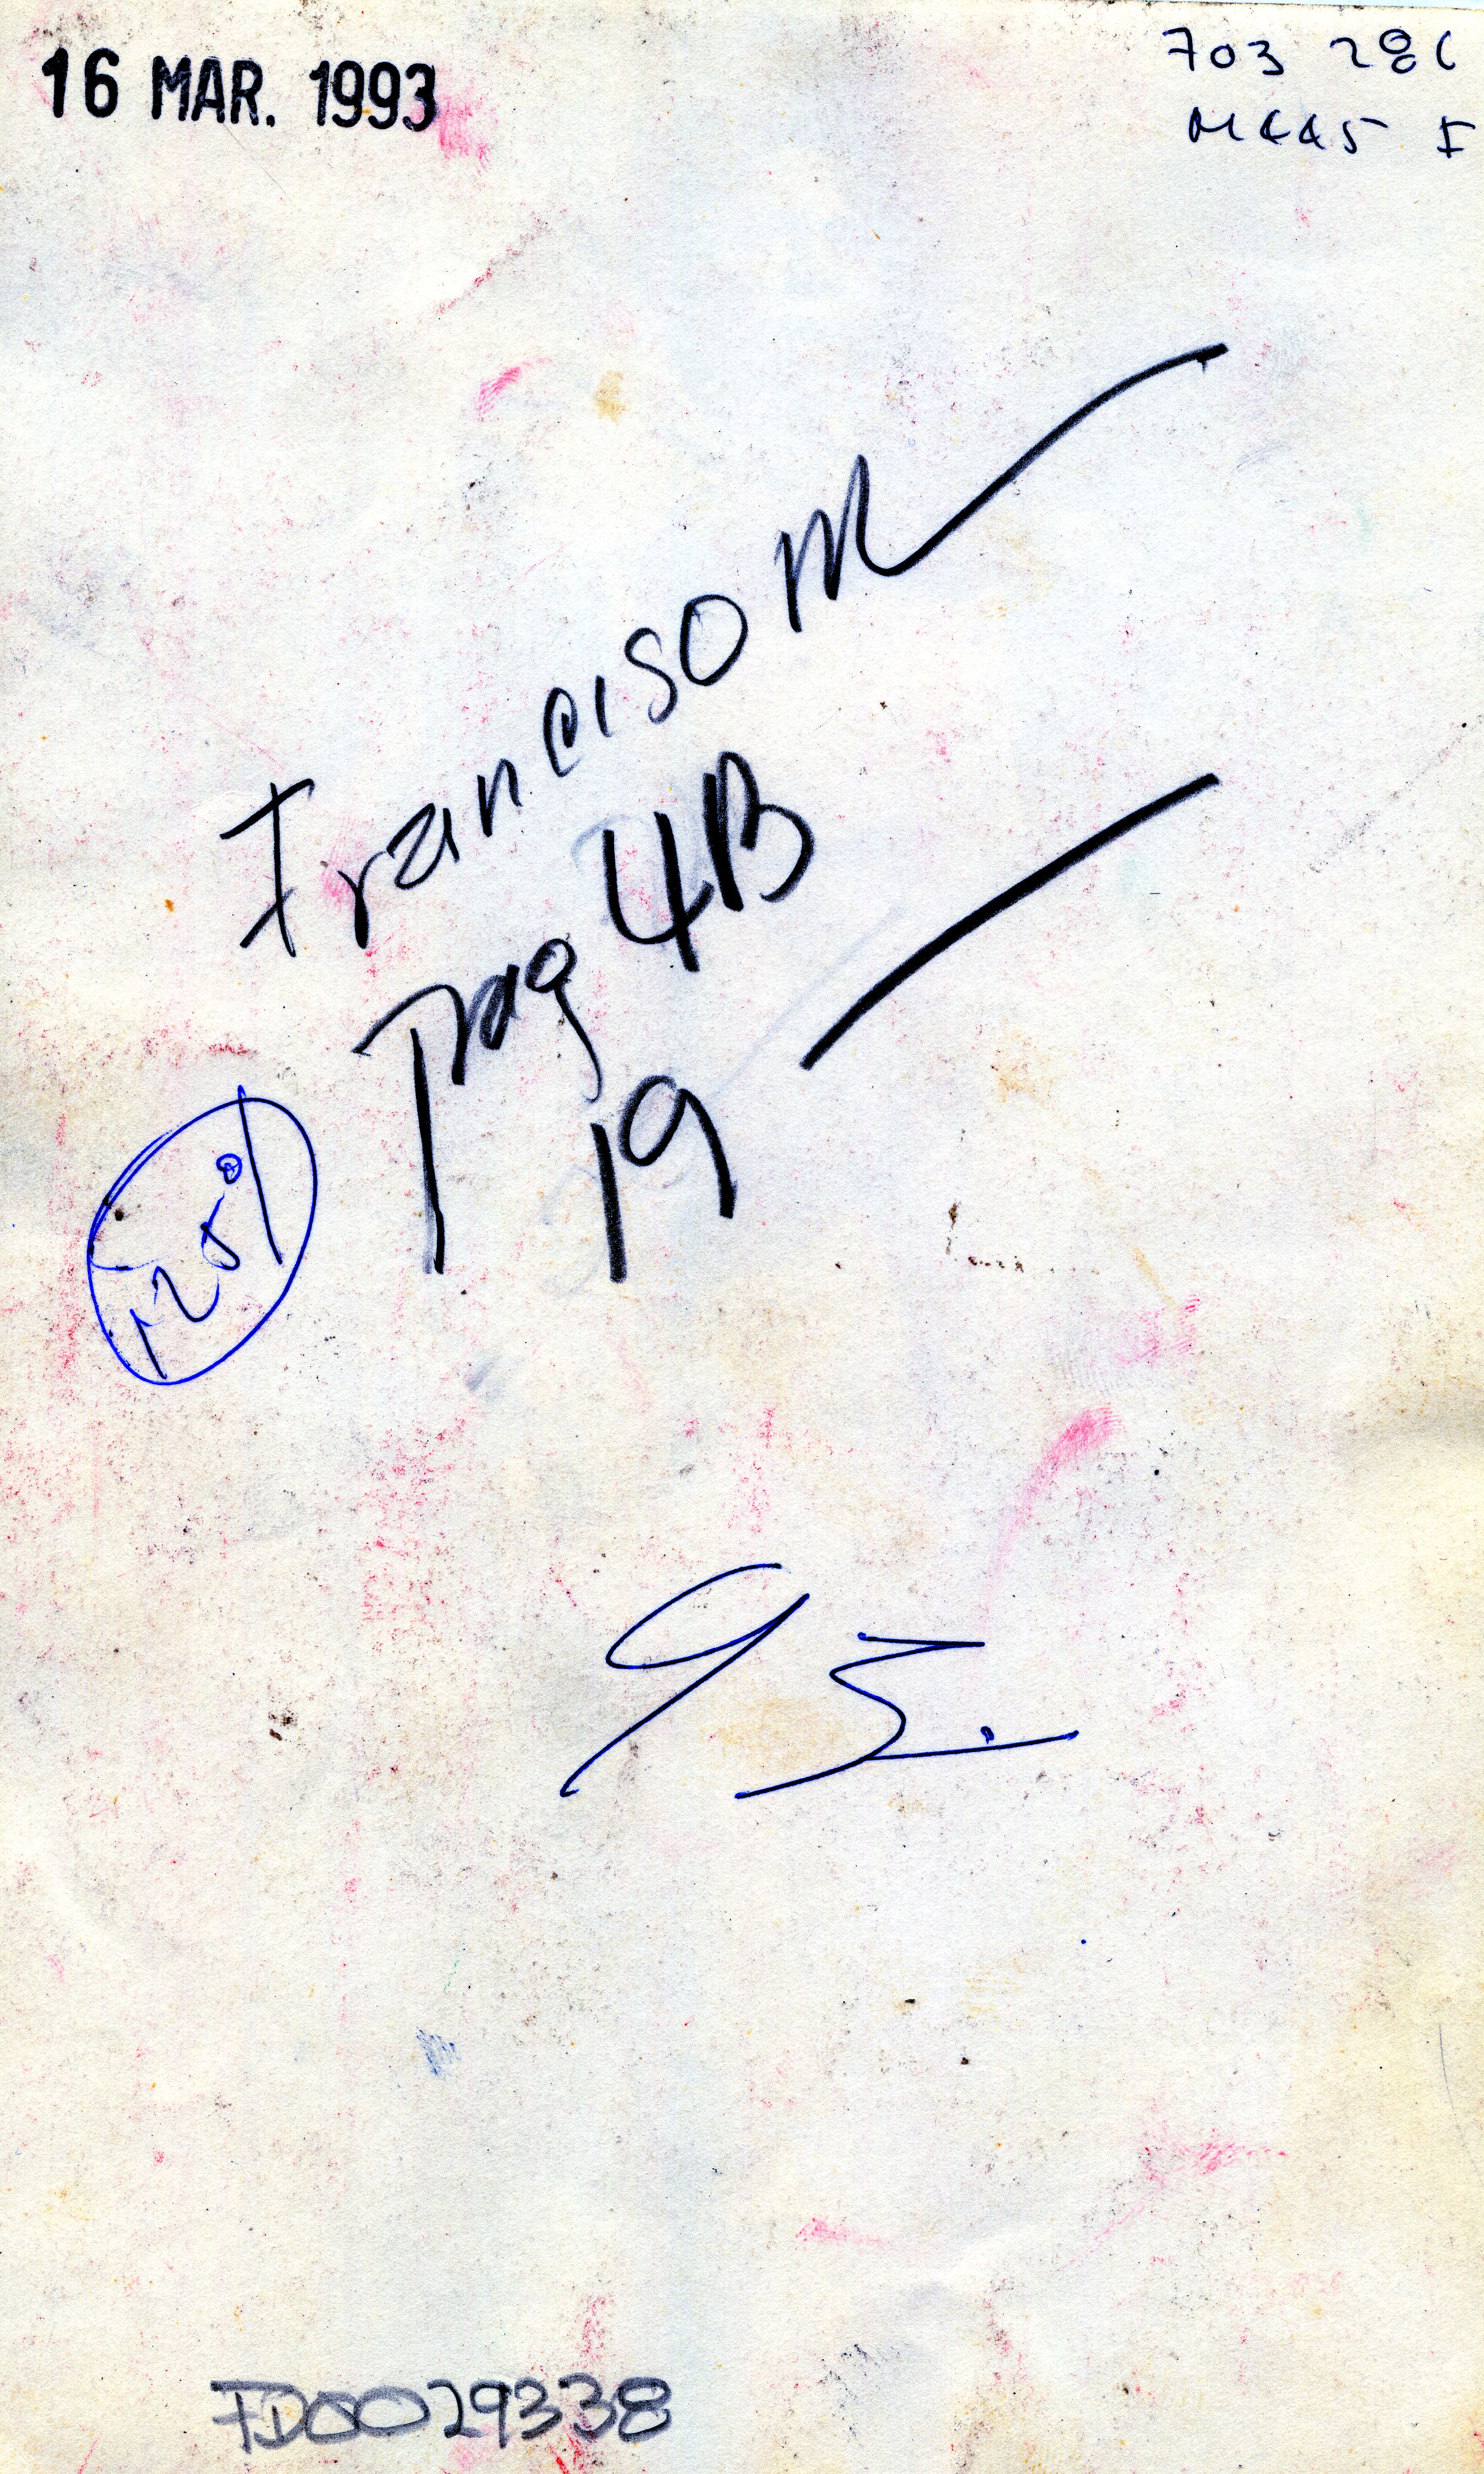 16 MAR. 1993
703 286
M445 F
Franciso M
pag 4B
19
125%
FD0029338